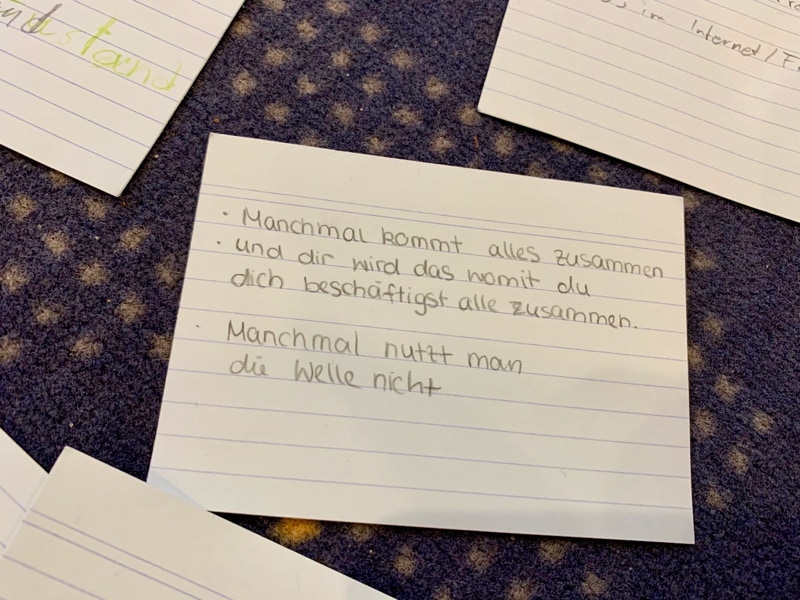 stand
im Internet /
· Manchmal kommt alles zusammen
· und dir wird das womit du
dich beschäftigst alle zusammen.
· Manchmal nutzt man
die Welle nicht